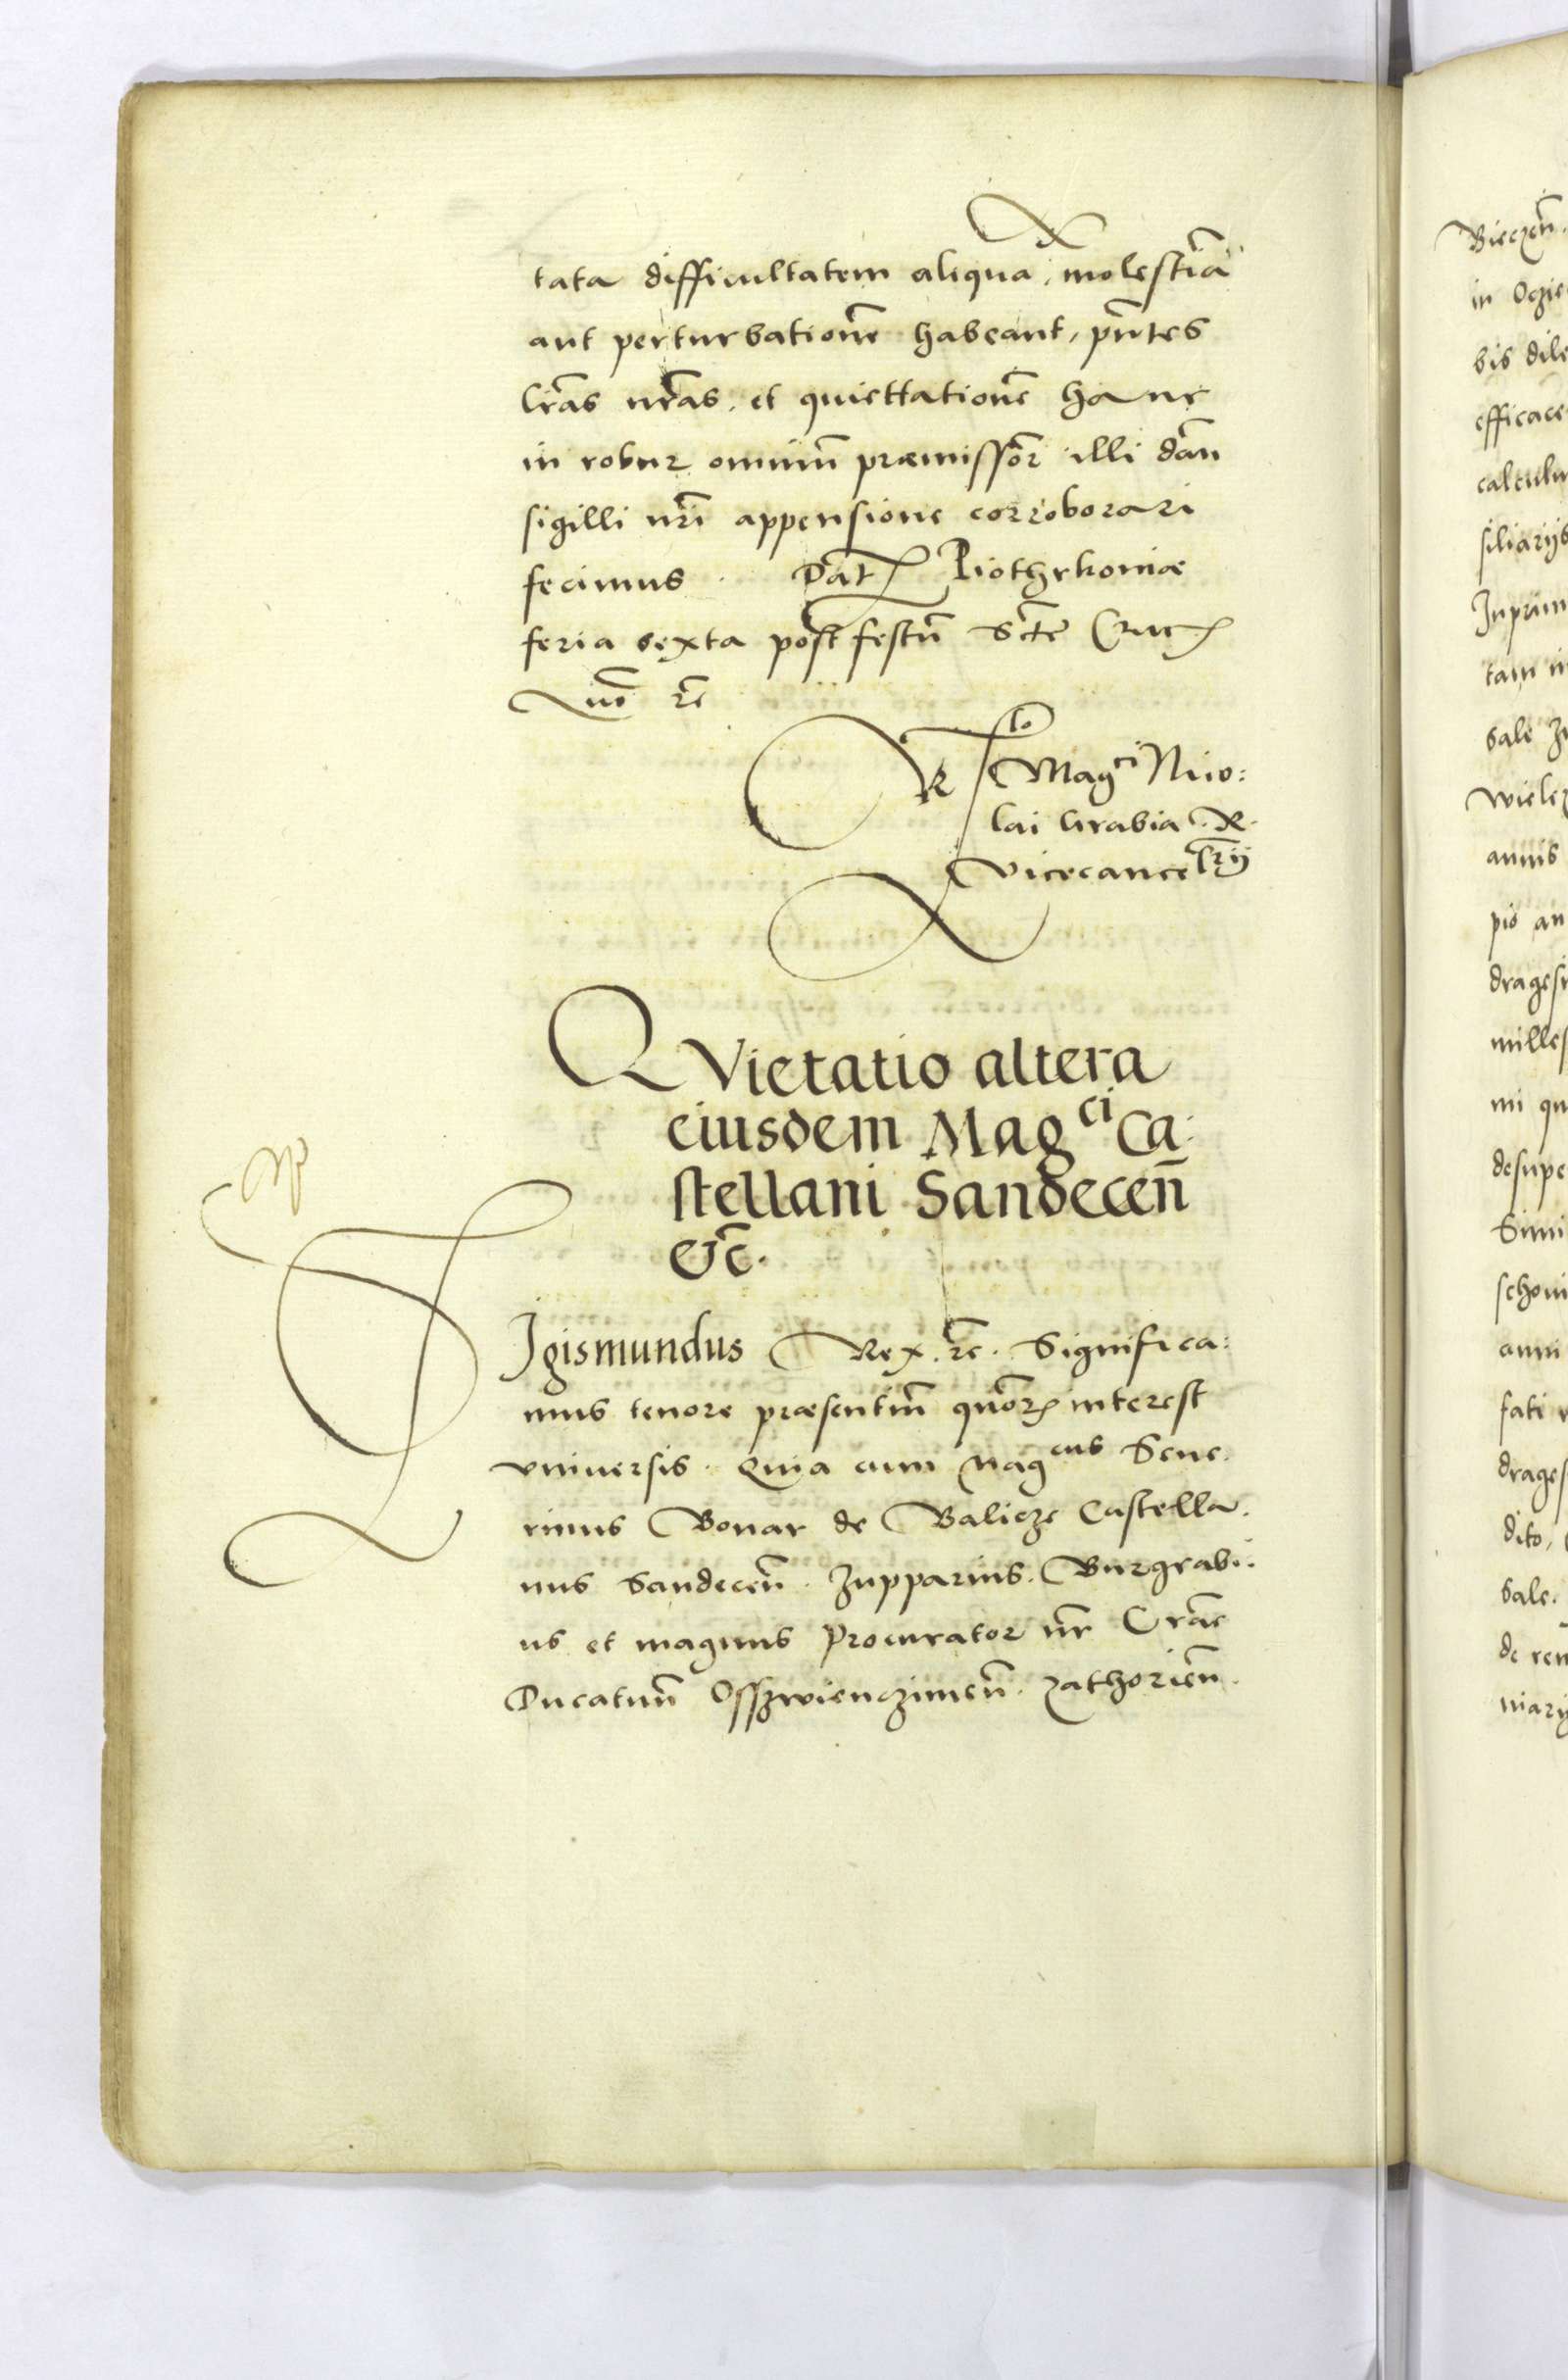 tata difficultatem aliqua, molestiā
aut perturbationē habeant, pñtes
lr̃as nr̃as, et quiettationē hanc
in robur omniū præmissor̃ illi dañ
sigilli nr̃i appensione corroborari
fecimus. Dat Piothrkoniæ
feria sexta post festū Scte Cruc
rc̃
R Magci Nico:
lai Grabia R.
Vicecancelrij
QVietatio altera
eiusdem Magci Ca:
stellani Sandecen̄
&c̃.
SIgismundus Rex. rc̃. Significa:
mus tenore præsentiū quor̃ interest
vniuersis. Quia cum Magcus Seue.
rinus Bonar de Balicze Castella.
nus Sandeceñ. Zupparius. Burgrabi:
us et magnus Procurator nr̃ Crac̃
Ducatuū Osszwienczimeñ. Zathorieñ.
Bieczeñ.
in Ogie
bis dile
efficace
calculu
siliarijs
Inprim
tam in
sale
wielez
annis
pio an
dragesi
milles
mi qu
desupe
Simi
schoni
anni
fati
drages
dito,
sale.
de rem
niarij